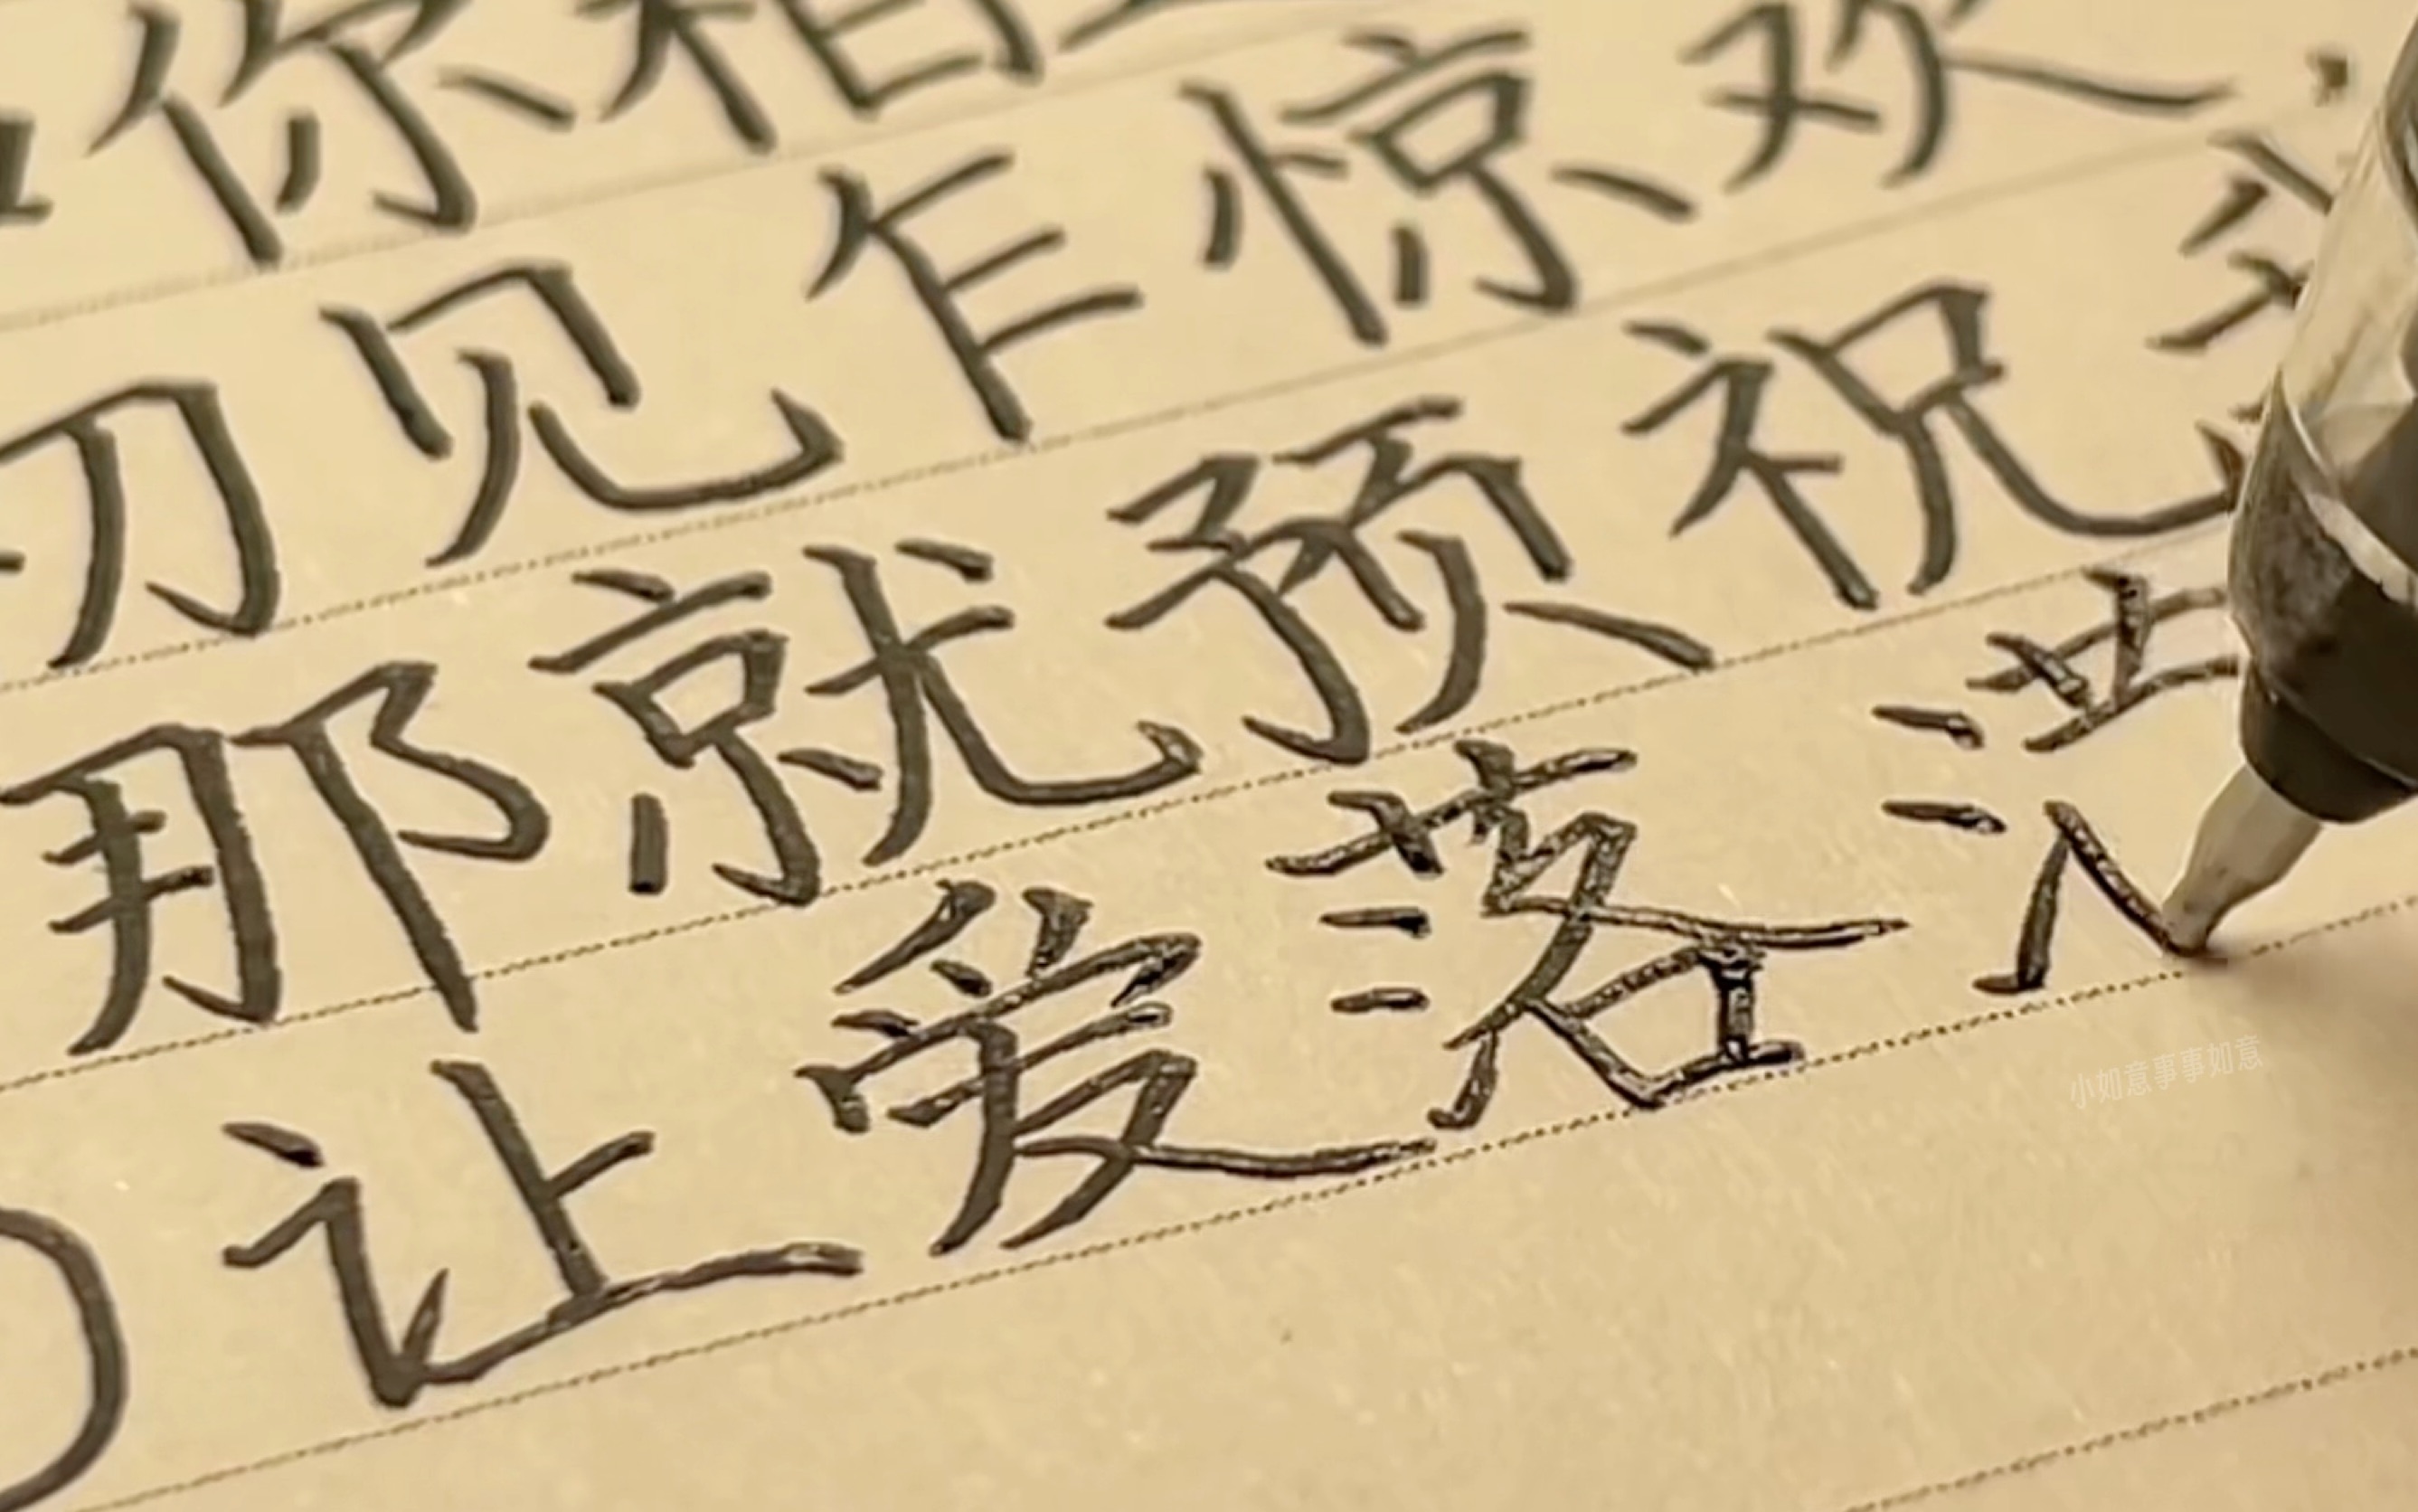 你相
初见乍惊欢
那就预祝
让爱落
小如意事事如意